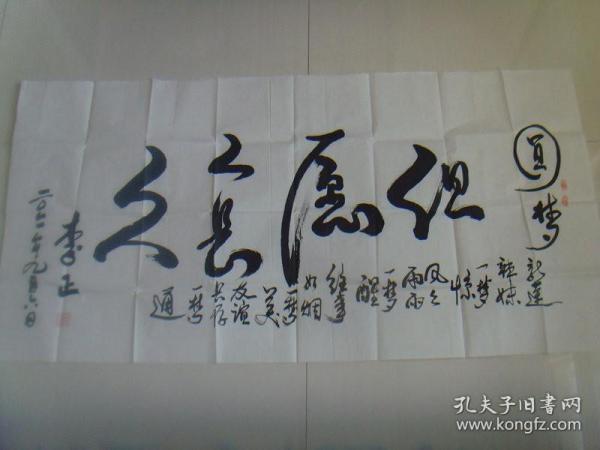 圆梦
但愿
人长
久
一梦
惊
风风
雨雨
一梦
醒
往事
如烟
一梦
美
友谊
长存
一梦
通
李正
二〇一一年九月六日
孔夫子旧书网
www.kongfz.com